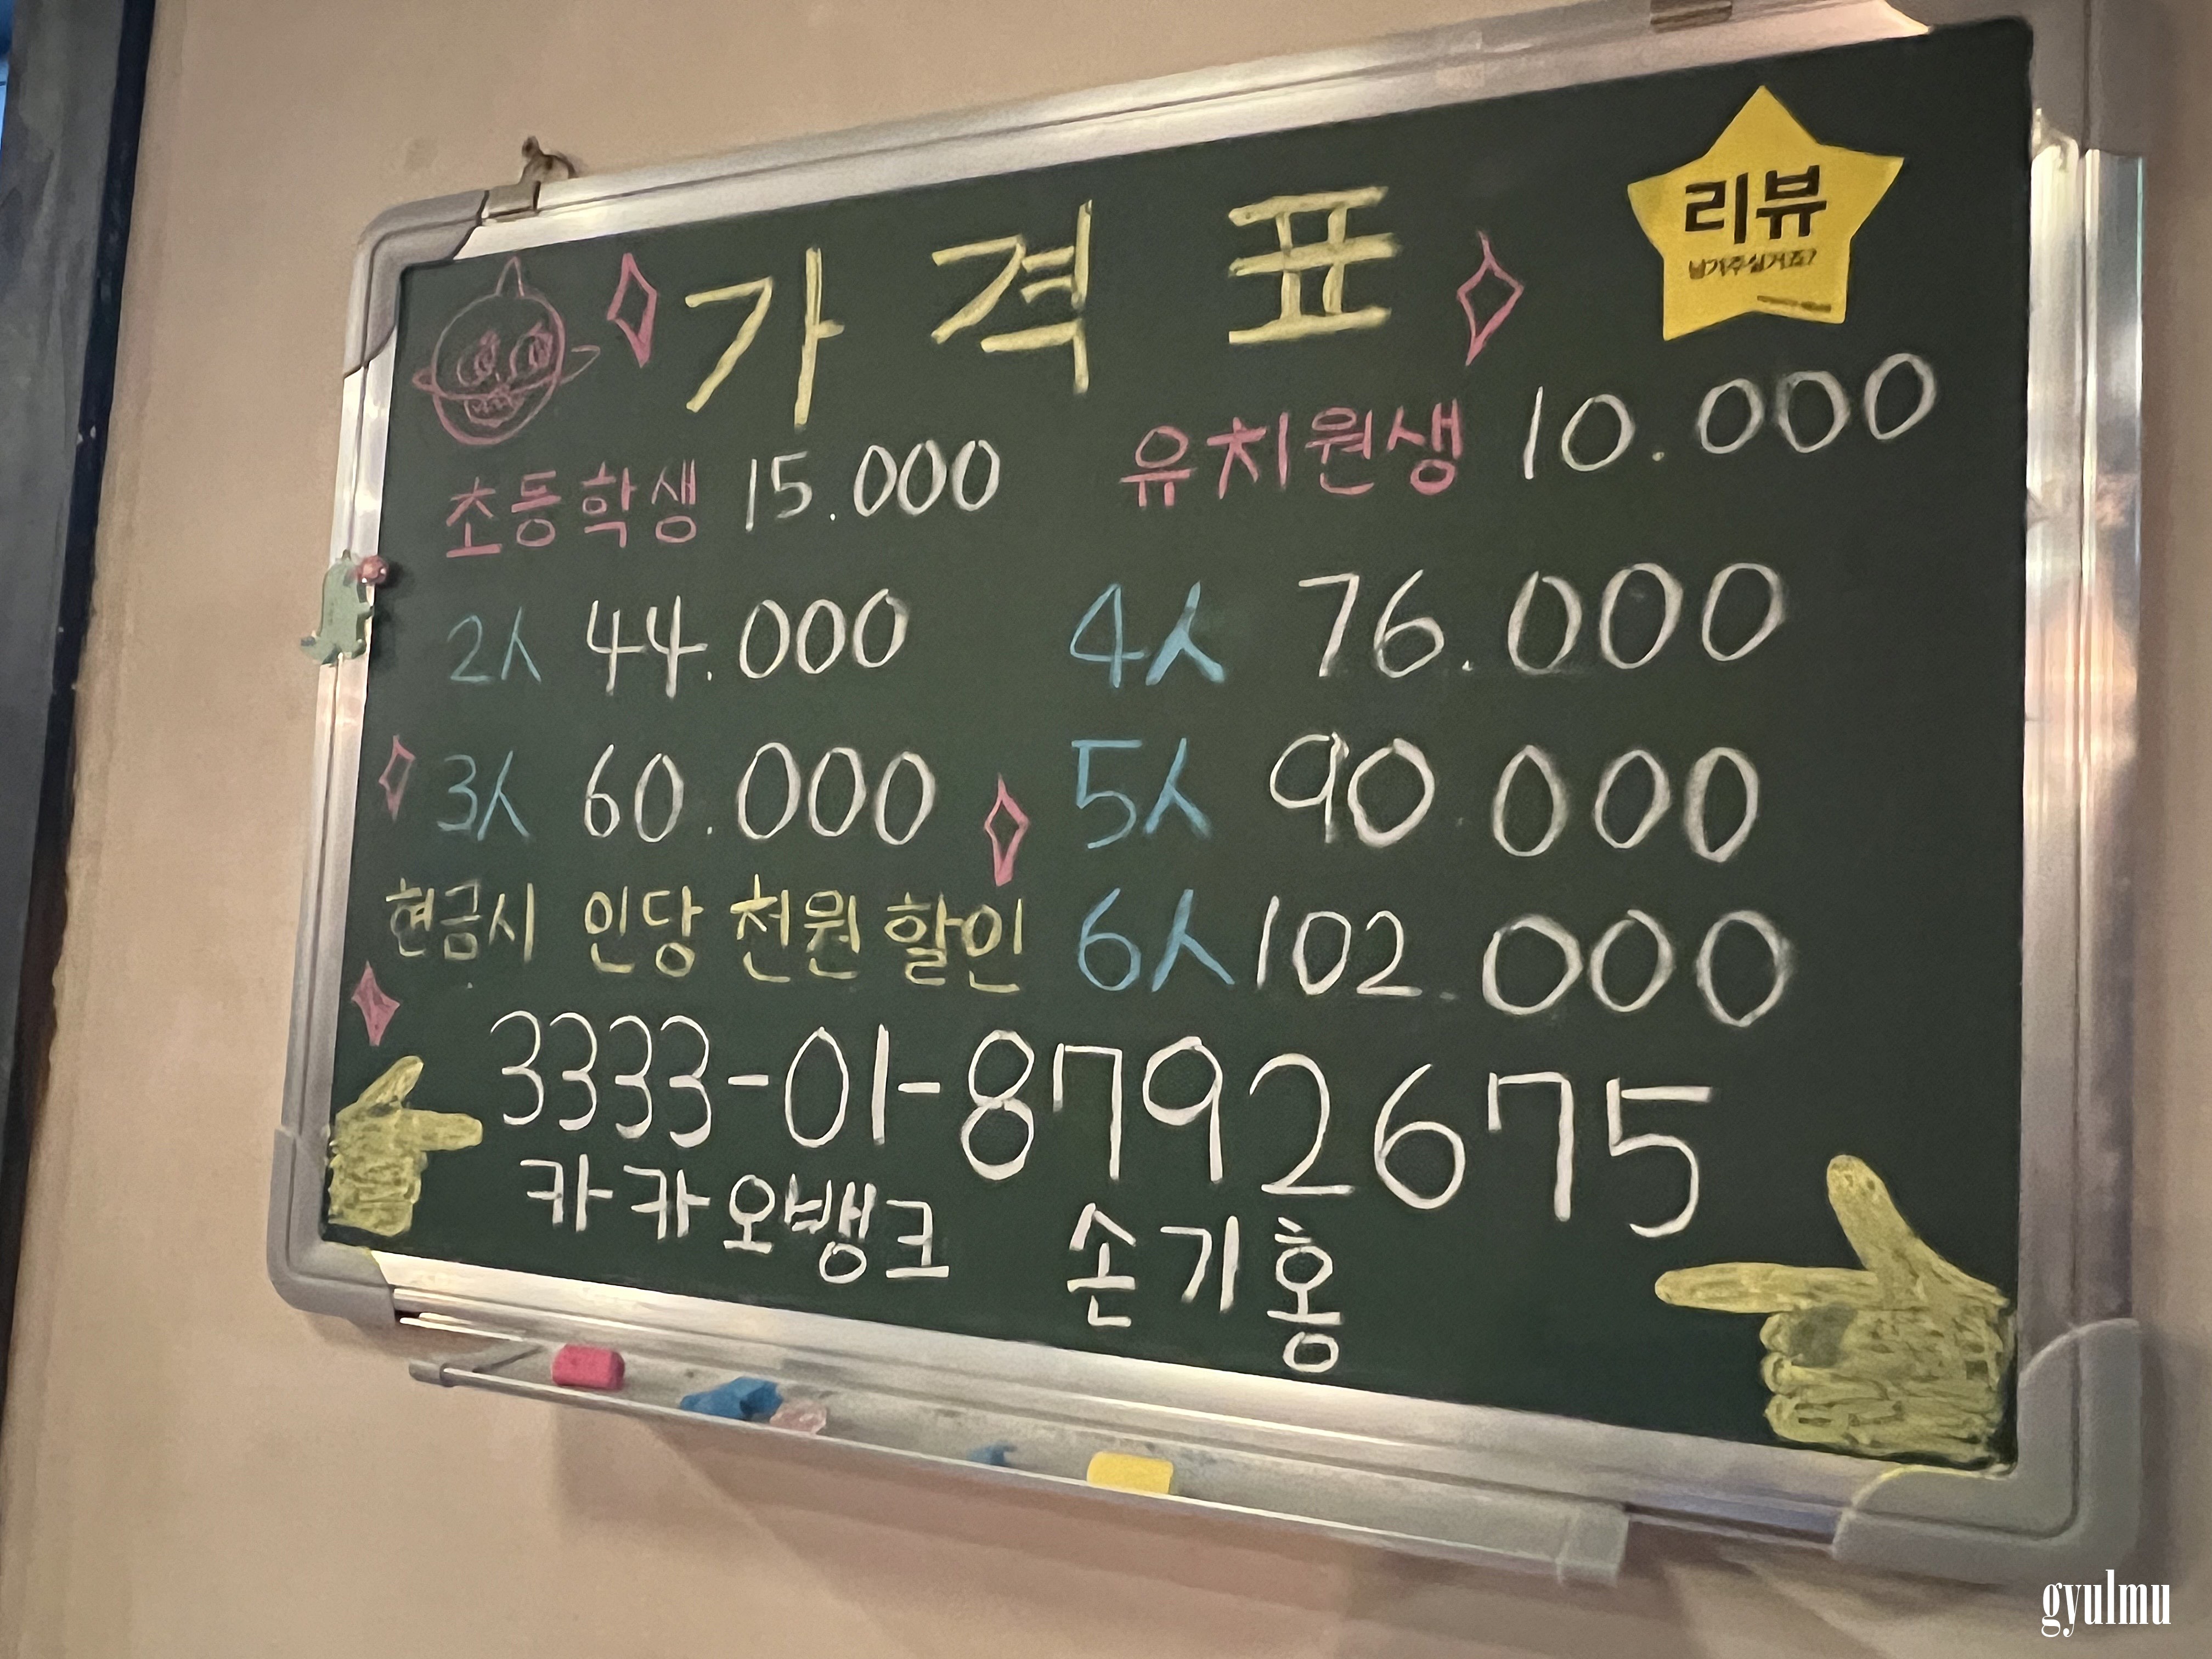 가격표
리뷰
남겨주실거죠?
초등학생 15.000 유치원생 10.000
2人 44.000 4人 76.000
3人 60.000 5人 90.000
현금시 인당 천원 할인 6人 102.000
3333-01-8792675
카카오뱅크 손기홍
gyulmu